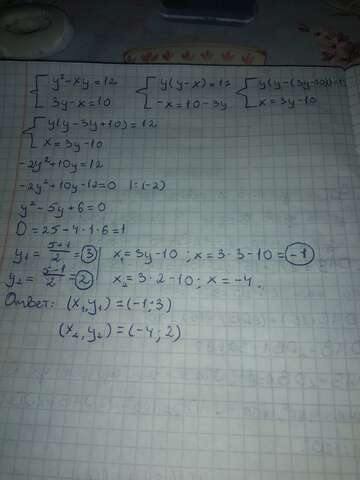 { y²-xy=12 { y(y-x)=12 { y(y-(3y-10))=12
{ 3y-x=10 { -x=10-3y { x=3y-10
{ y(y-3y+10)=12
{ x=3y-10
-2y²+10y=12
-2y²+10y-12=0 |:(-2)
y²-5y+6=0
D=25-4·1·6=1
y₁=(5+1)/2=3 | x₁=3y-10; x=3·3-10=-1
y₂=(5-1)/2=2 | x₂=3·2-10; x=-4.
Ответ: (x₁,y₁)=(-1;3)
(x₂,y₂)=(-4;2)